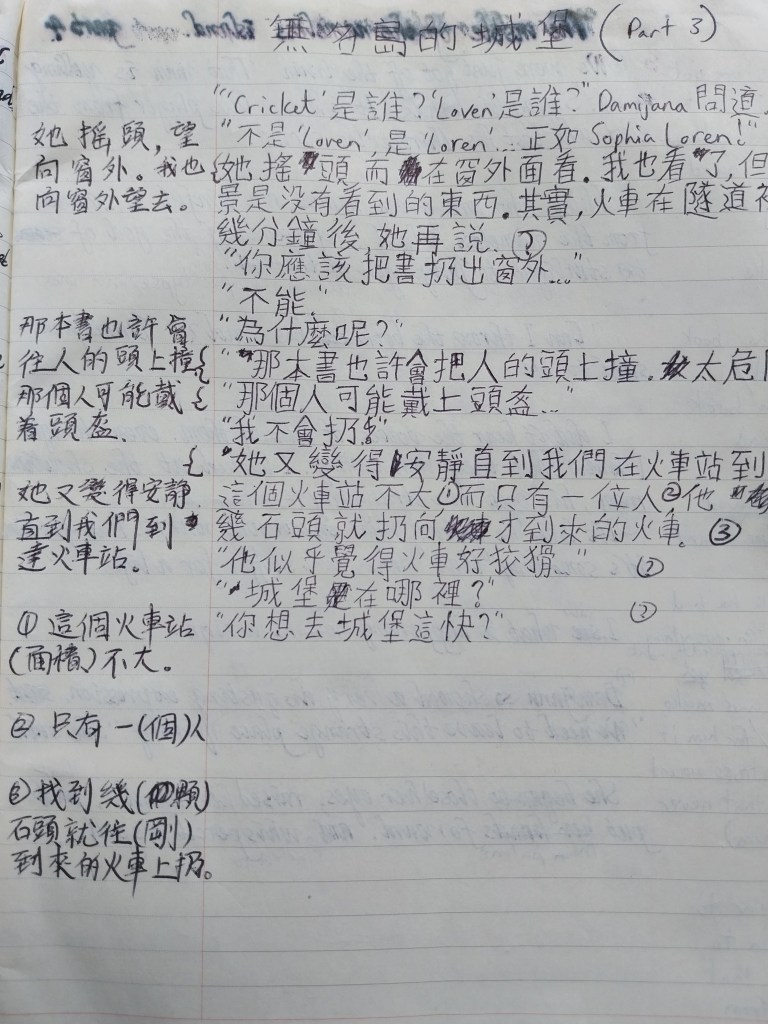 無名島的城堡 (Part 3)
"'Cricket' 是誰? 'Loven' 是誰?" Damijana 問道.
"不是 'Loven', 是 'Loren'... 正如 Sophia Loren!"
她搖頭而在窗外面看. 我也看了, 但
景是没有看到的東西. 其實, 火車在隧道裡
幾分鐘後, 她再説. ①
"你應該把書扔出窗外..."
"不能."
"為什麼呢?"
"那本書也許會把人的頭上撞. 太危險
"那個人可能戴上頭盔..."
"我不會扔!"
她又變得安靜直到我們在火車站到
這個火車站不大,① 而只有一位人② 他
幾石頭就扔向才到來的火車. ③
"他似乎覺得火車好狡猾..." ②
"城堡在哪裡?" ②
"你想去城堡這快?"
她搖頭, 望
向窗外。我也
向窗外望去。
那本書也許會
往人的頭上撞
那個人可能戴
着頭盔.
她又變得安靜
直到我們到
達火車站。
① 這個火車站
(面積)不大。
② 只有一(個)人
③ 找到幾(顆)
石頭就往(剛)
到來的火車上扔。